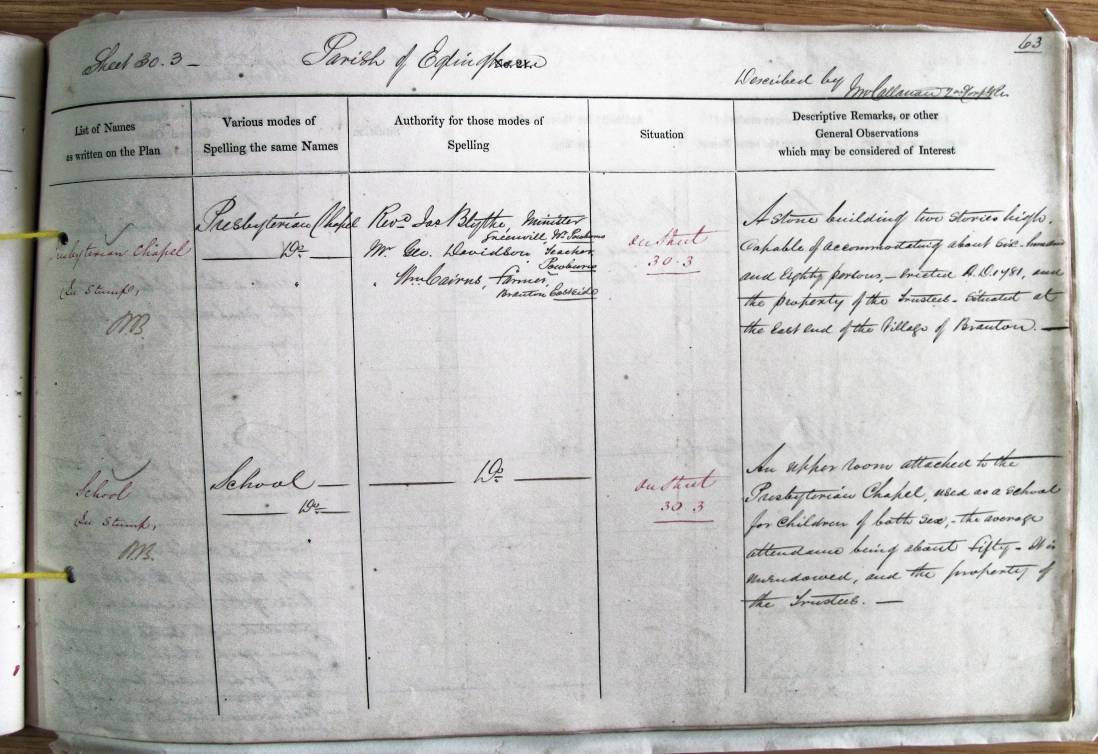 63
Sheet 30.3 - Parish of Eglingham
Described by
List of Names
as written on the Plan
Various modes of
Spelling the same Names
Authority for those modes of
Spelling
Situation
Descriptive Remarks, or other
General Observations
which may be considered of Interest
Presbyterian Chapel
In Stump,
Presbyterian Chapel
Do
Revd. Jas Blythe Minister
Mr. Geo. Davidson Teacher
Powburn
Wm Cairns, Farmer
Branton Eastside
on Sheet
30.3
A stone building two stories high.
Capable of accommodating about Six-hundred
and Eighty persons, - Erected A.D. 1781, and
the property of the Trustees - Situated at
the East end of the Village of Branton. —
School
In Stump,
School —
Do
Do
on Sheet
30.3
An upper room attached to the
Presbyterian Chapel, used as a School
for children of both Sex, - the average
attendance being about Fifty - It is
unendowed, and the property of
the Trustees. —